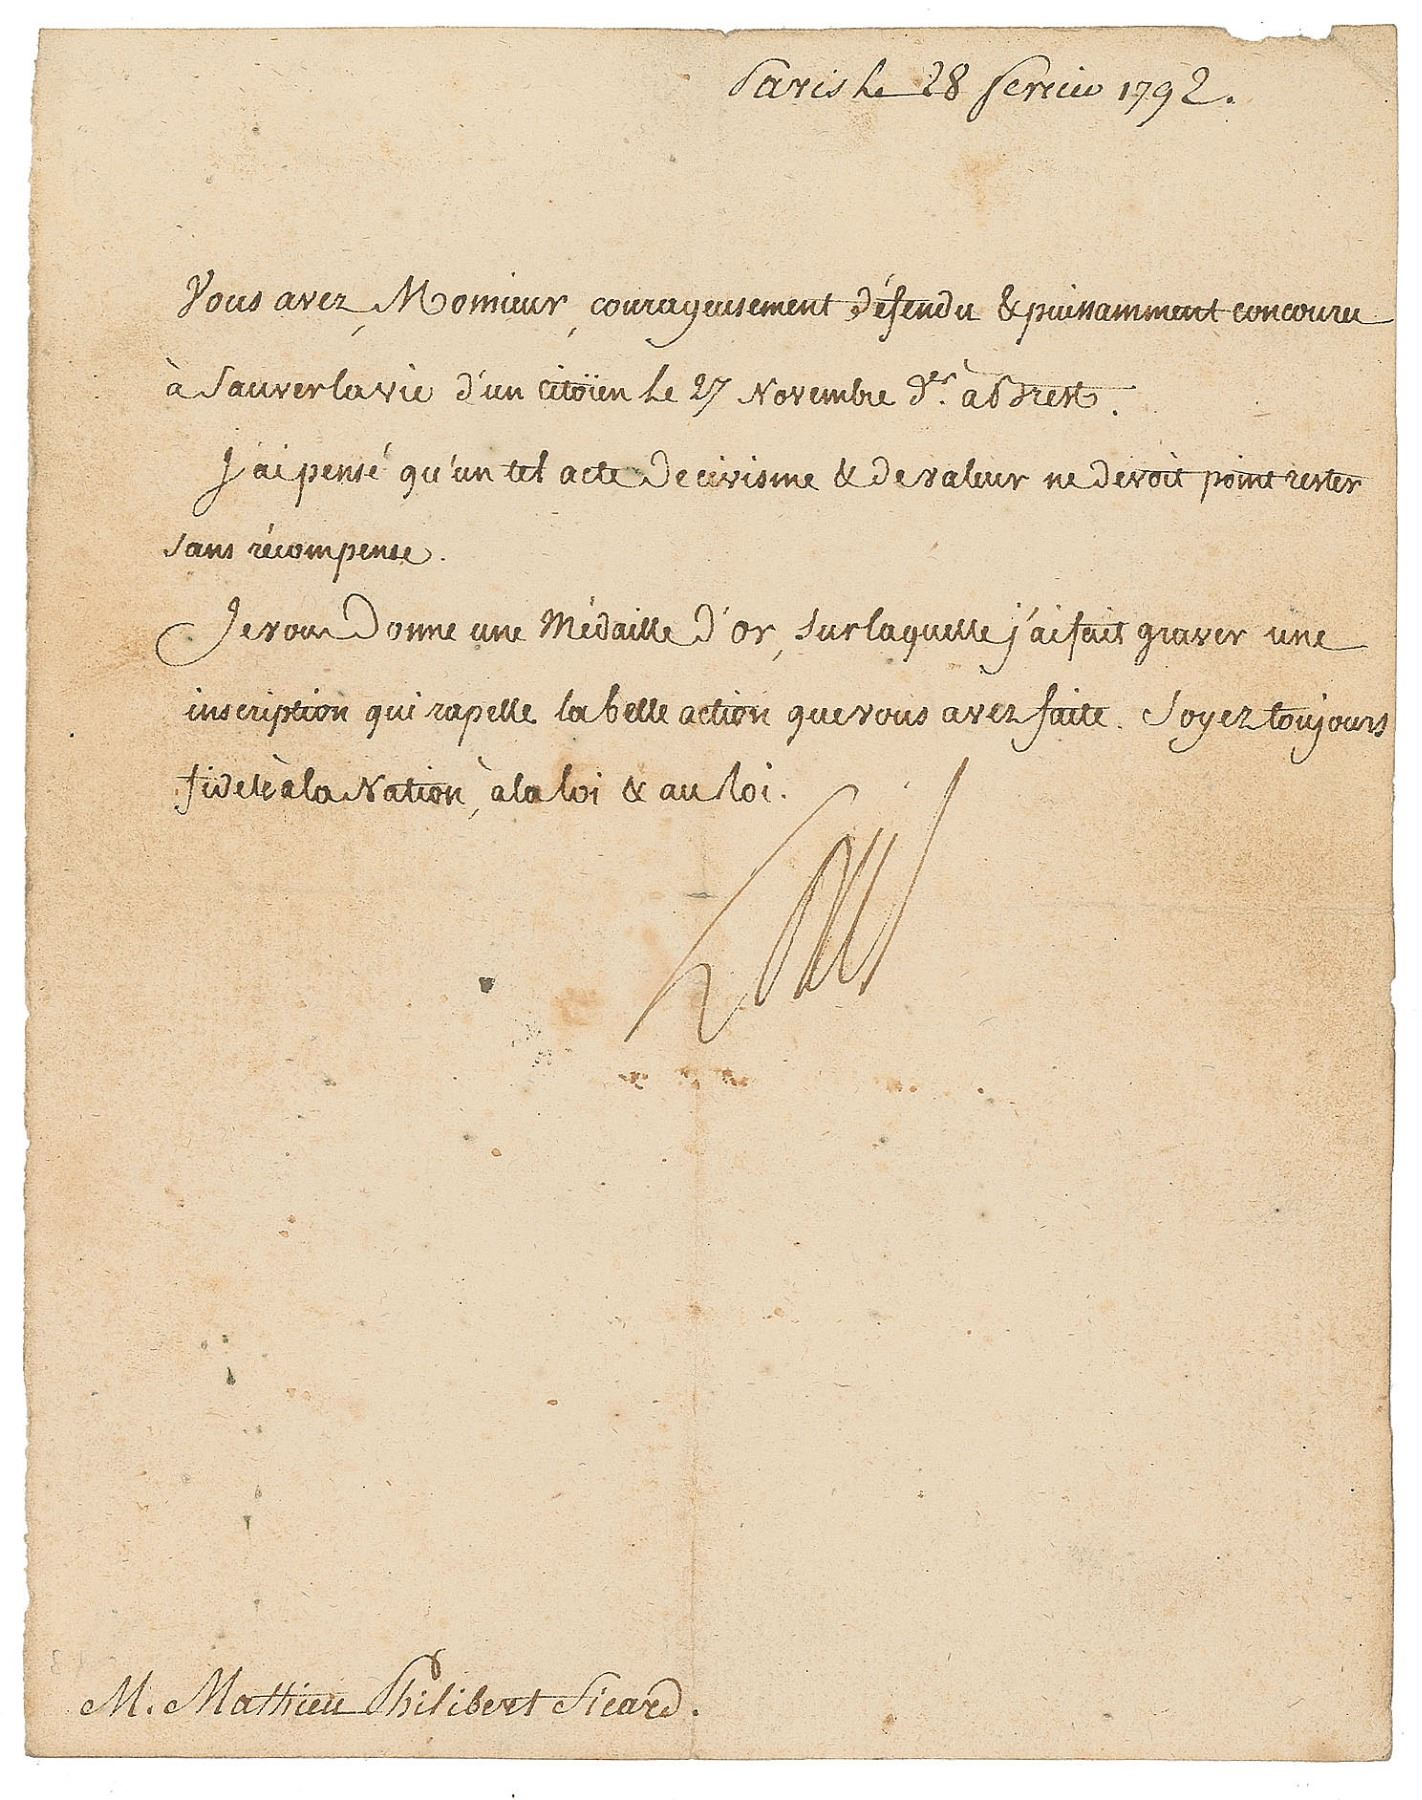 Paris le 28 fevrier 1792.
Vous avez, Monsieur, courageusement défendu & puissamment concouru
à sauver la vie d'un citoïen le 27 Novembre d.er à Brest.
J'ai pensé qu'un tel acte de civisme & de valeur ne devoit point rester
sans récompense.
Je vous donne une Médaille d'Or, sur laquelle j'ai fait graver une
inscription qui rapelle la belle action que vous avez faite. Soyez toujours
fidele à la Nation, à la loi & au Roi.
Louis
M. Mathieu Philibert Sicard.